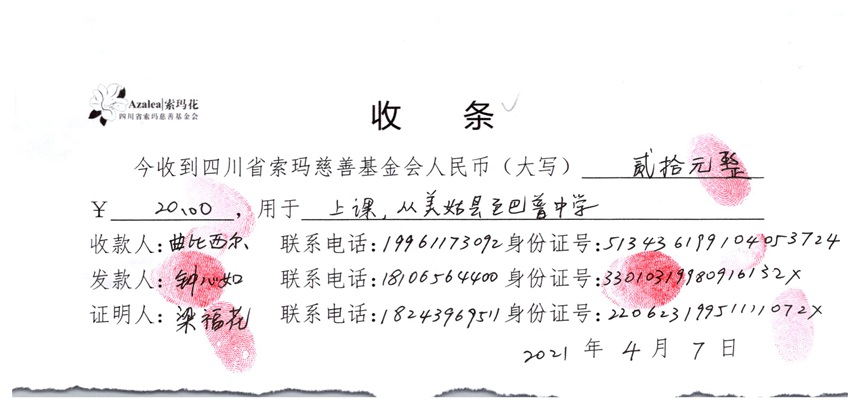 Azalea|索玛花
四川省索玛慈善基金会
收 条
今收到四川省索玛慈善基金会人民币（大写） 贰拾元整
¥ 20.00 ，用于 上课，从美姑县至巴普中学
收款人：曲比西尔 联系电话：19961173092 身份证号：513436199104053724
发款人：钟心如 联系电话：18106564400 身份证号：33010319980916132X
证明人：梁福花 联系电话：18243969511 身份证号：22062319951111072X
2021 年 4 月 7 日